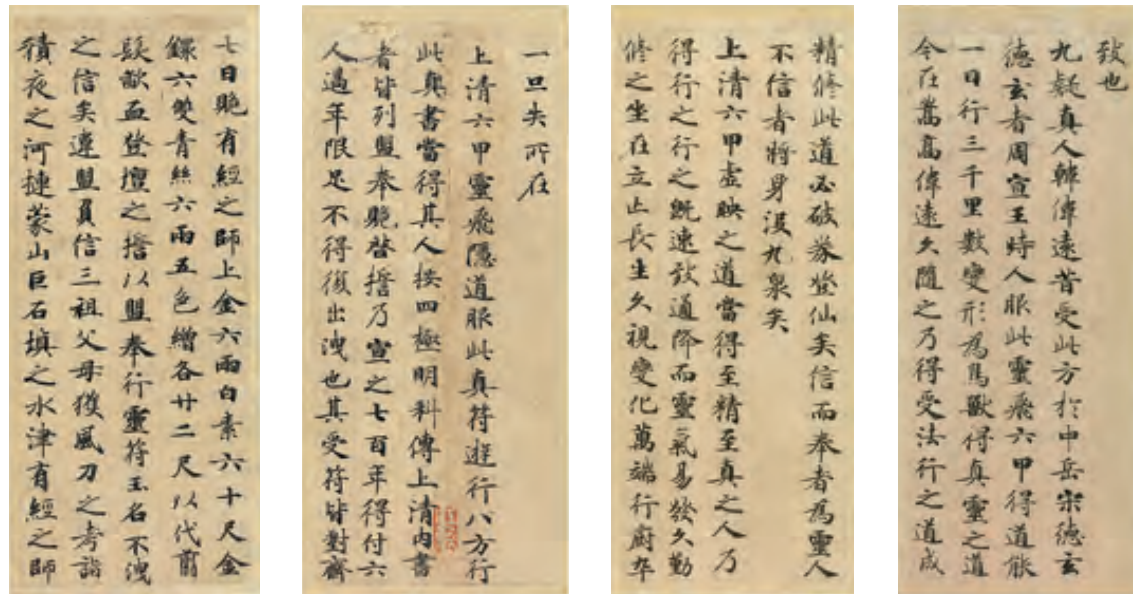 致也
九疑真人韓偉遠昔受此方於中岳宋德玄
德玄者周宣王時人服此靈飛六甲得道能
一日行三千里數變形為鳥獸得真靈之道
今在嵩高偉遠久隨之乃得受法行之道成
精修此道必破券登仙矣信而奉者為靈人
不信者將身沒九泉矣
上清六甲虛映之道當得至精至真之人乃
得行之行之既速致道降而靈氣易發久勤
修之坐在立亡長生久視變化萬端行廚卒
一旦失所在
上清六甲靈飛隱道服此真符遊行八方行
此真書當得其人按四極明科傳上清內書
者皆列盟奉貺啓誓乃宣之七百年得付六
人過年限足不得復出洩也其受符皆對齋
七日貺有經之師上金六兩白素六十尺金
鐶六雙青絲六兩五色繒各廿二尺以代翦
髮歃血登壇之誓以盟奉行靈符玉名不洩
之信矣違盟負信三祖父母獲風刀之考詣
積夜之河揵蒙山巨石填之水津有經之師